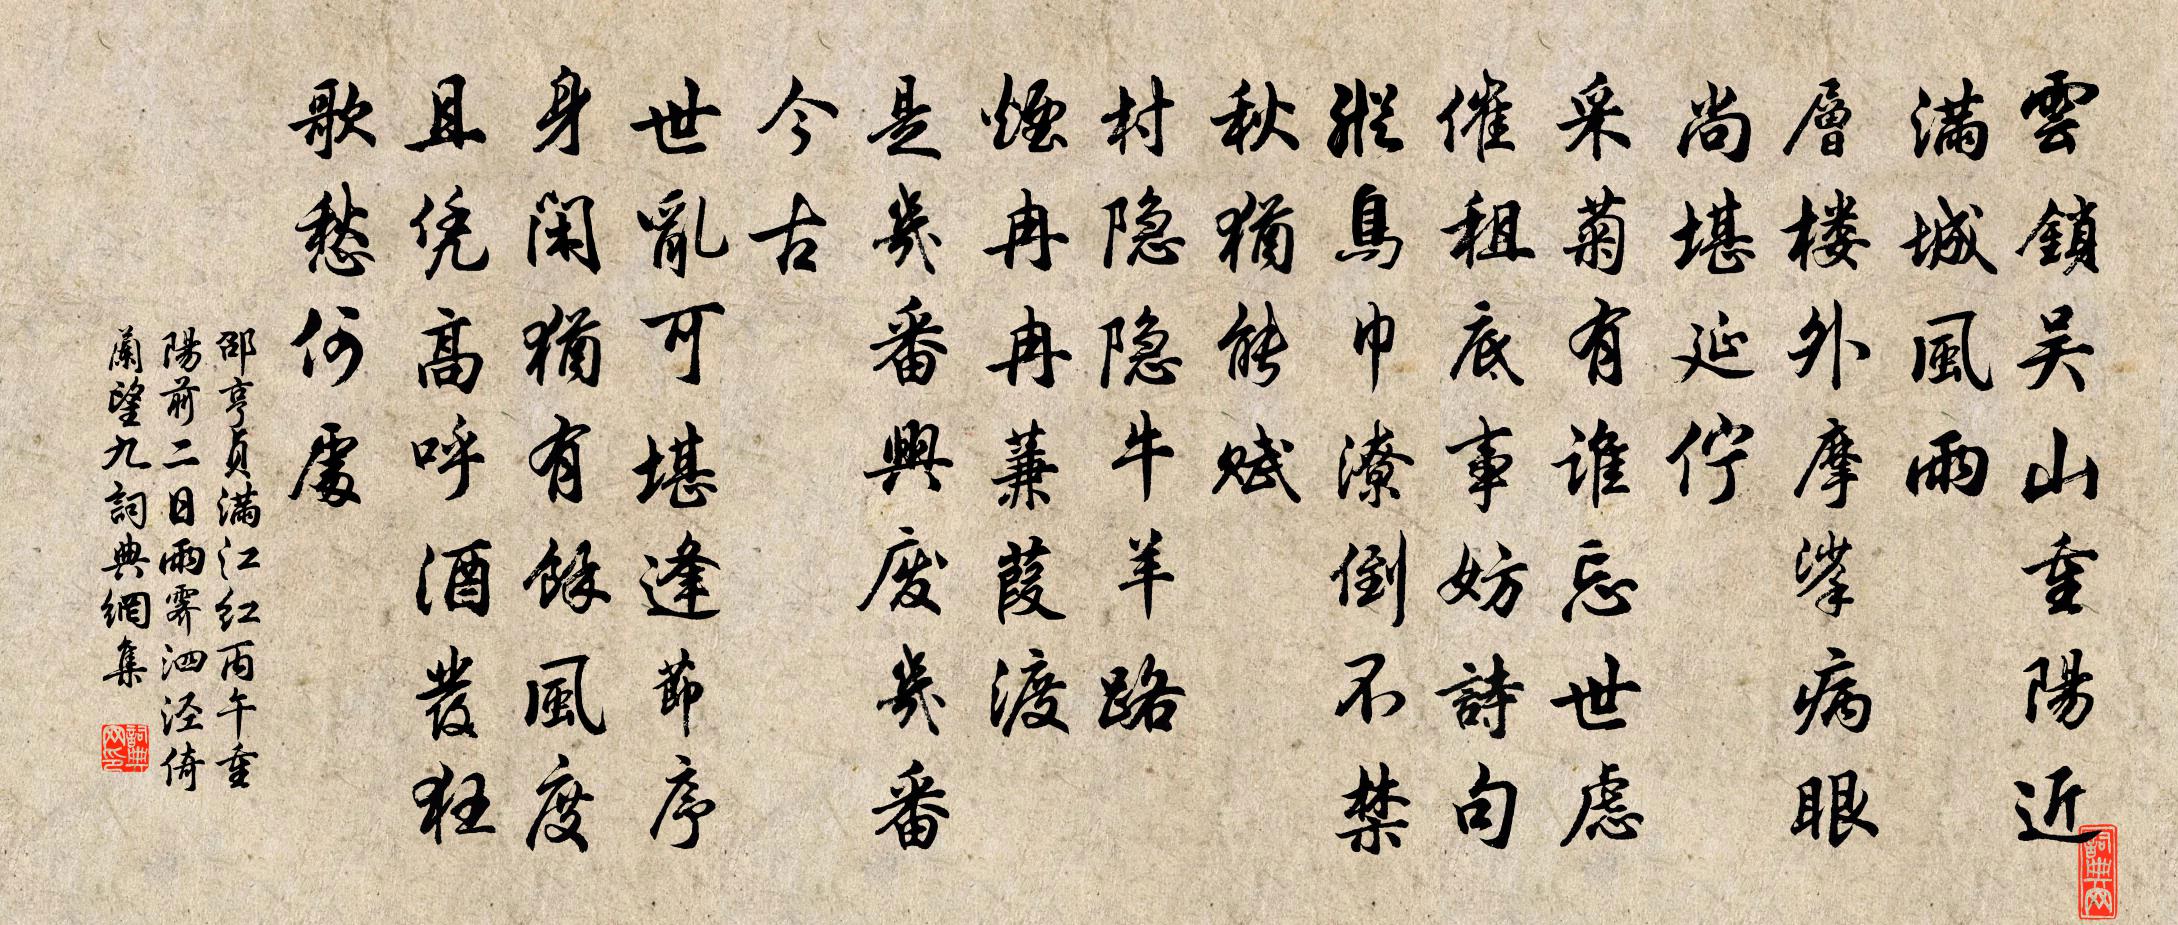 雲鎖吴山重陽近
满城風雨
層楼外摩挲病眼
尚堪延佇
采菊有谁忘世慮
催租底事妨詩句
縱烏巾潦倒不禁
秋猶能赋
村隐隐牛羊路
煙冉冉蒹葭渡
是幾番興廢幾番
今古
世亂可堪逢節序
身閑猶有餘風度
且凭高呼酒發狂
歌愁何處
邵亨貞满江红丙午重
陽前二日雨霁泗泾倚
蘭望九詞典網集
詞典网
詞典网印